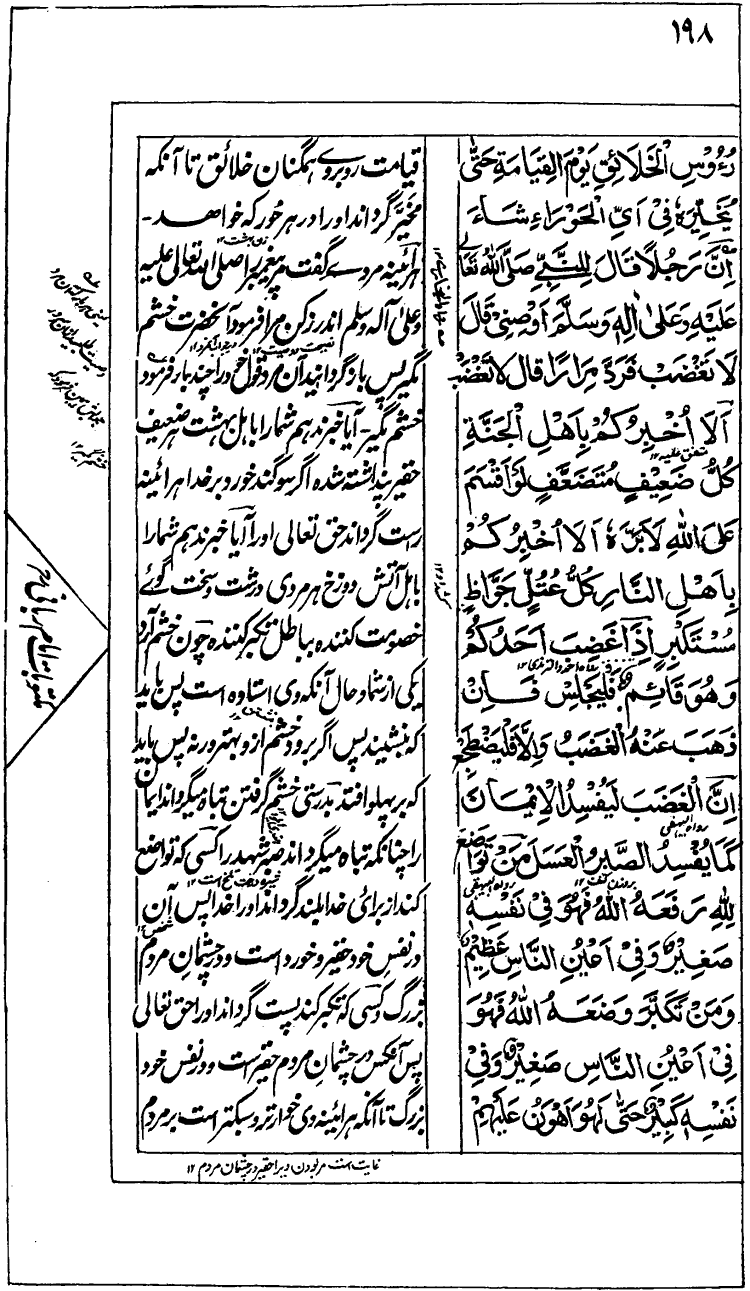 ۱۹۸
رُءُوْسِ الْخَلَائِقِ يَوْمَ الْقِيَامَةِ حَتّٰى
يُخَيِّرَهٗ فِيْ اَيِّ الْحَوْرَاءِ شَاءَ
اِنَّ رَجُلًا قَالَ لِلنَّبِيِّ صَلَّى اللهُ تَعَالٰى
عَلَيْهِ وَعَلٰى اٰلِهٖ وَسَلَّمَ اَوْصِنِيْ قَالَ
لَا تَغْضَبْ فَرَدَّ مِرَارًا قَالَ لَا تَغْضَبْ
اَلَا اُخْبِرُكُمْ بِاَهْلِ الْجَنَّةِ
متفق علیه ۱۲
كُلُّ ضَعِيْفٍ مُتَضَعَّفٍ لَوْ اَقْسَمَ
عَلَى اللهِ لَاَبَرَّهٗ اَلَا اُخْبِرُكُمْ
بِاَهْلِ النَّارِ كُلُّ عُتُلٍّ جَوَّاظٍ
مُسْتَكْبِرٍ اِذَا غَضِبَ اَحَدُكُمْ
وَهُوَ قَائِمٌ فَلْيَجْلِسْ فَاِنْ
ذَهَبَ عَنْهُ الْغَضَبُ وَاِلَّا فَلْيَضْطَجِعْ
اِنَّ الْغَضَبَ لَيُفْسِدُ الْاِيْمَانَ
رواه البیهقی
كَمَا يُفْسِدُ الصَّبِرُ الْعَسَلَ مَنْ تَوَاضَعَ
لِلّٰهِ رَفَعَهُ اللهُ فَهُوَ فِيْ نَفْسِهٖ
صَغِيْرٌ وَفِيْ اَعْيُنِ النَّاسِ عَظِيْمٌ
وَمَنْ تَكَبَّرَ وَضَعَهُ اللهُ فَهُوَ
فِيْ اَعْيُنِ النَّاسِ صَغِيْرٌ وَفِيْ
نَفْسِهٖ كَبِيْرٌ حَتّٰى لَهُوَ اَهْوَنُ عَلَيْهِمْ
قیامت روبروے ہمگنان خلائق تا آنکه
مخیر گرداند اورا در ہر حور که خواهد -
هرآئینه مردے گفت مر پیغمبر را صلی الله تعالی علیه
وعلی آله وسلم اندرز کن مرا فرمود آنحضرت خشم
مگیر پس بازگردانید آن مرد قول خود را چند بار فرمود
خشم مگیر - آیا خبر ندهم شمارا باہل بہشت ہر ضعیف
حقیر پنداشته شده اگر سوگند خورد بر خدا هرآئینه
راست گرداند حق تعالی اورا آیا خبر ندهم شمارا
باہل آتش دوزخ ہر مردی درشت و سخت گوئے
خصومت کننده بباطل تکبر کننده چون خشم آرد
یکی از شما و حال آنکه وی استاده است پس باید
که بنشیند پس اگر برود خشم ازو بہتر ورنه پس باید
که بر پہلو افتد بدرستی خشم گرفتن تباه میگرداند ایمان
را چنانکه تباه میگرداند صبر شہد را کسی که تواضع
کند از برای خدا بلند گرداند او را خدا پس آن
در نفس خود حقیر و خورد است و در چشمان مردم
بزرگ و کسی که تکبر کند پست گرداند اورا حق تعالی
پس آنکس در چشمان مردم حقیر ست و در نفس خود
بزرگ تا آنکه هرآئینه وی خوارتر و سبکتر است بر مردم
مکتوبات امام ربانی
غایت است مر بودن ویرا حقیر در چشمان مردم ۱۲